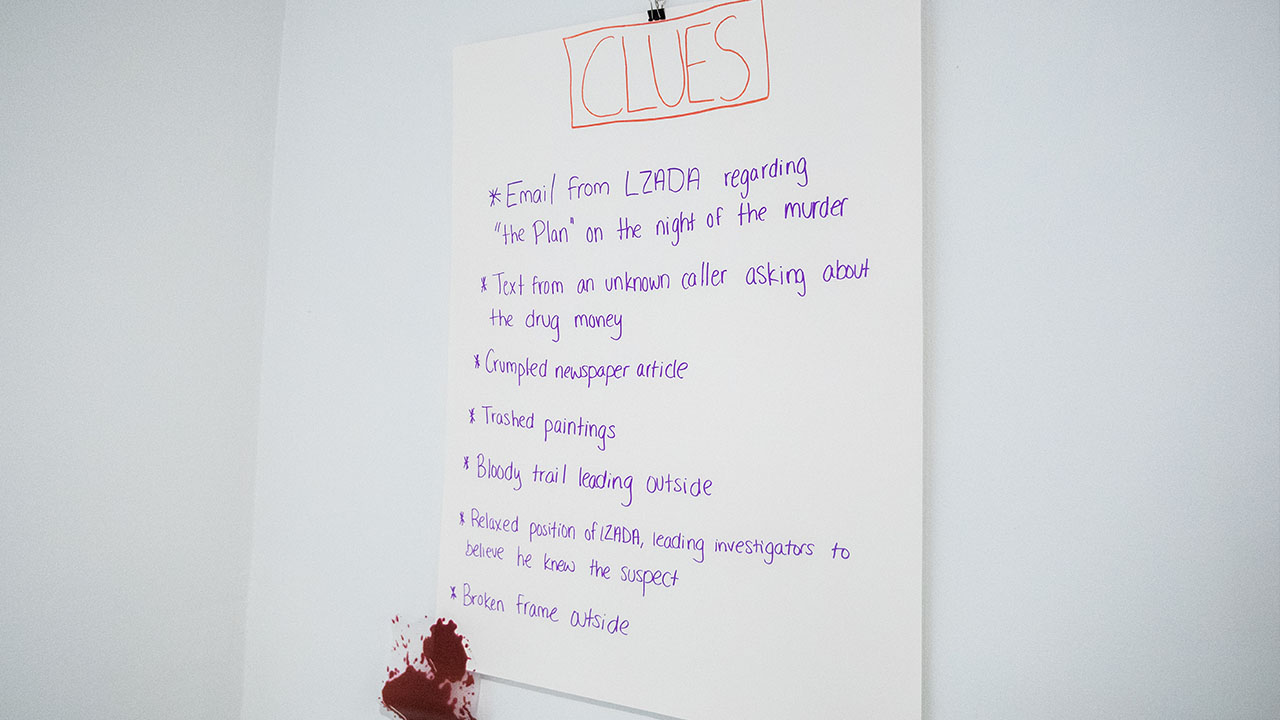 CLUES
* Email from LZADA regarding
"the Plan" on the night of the murder
* Text from an unknown caller asking about
the drug money
* Crumpled newspaper article
* Trashed paintings
* Bloody trail leading outside
* Relaxed position of LZADA, leading investigators to
believe he knew the suspect
* Broken frame outside